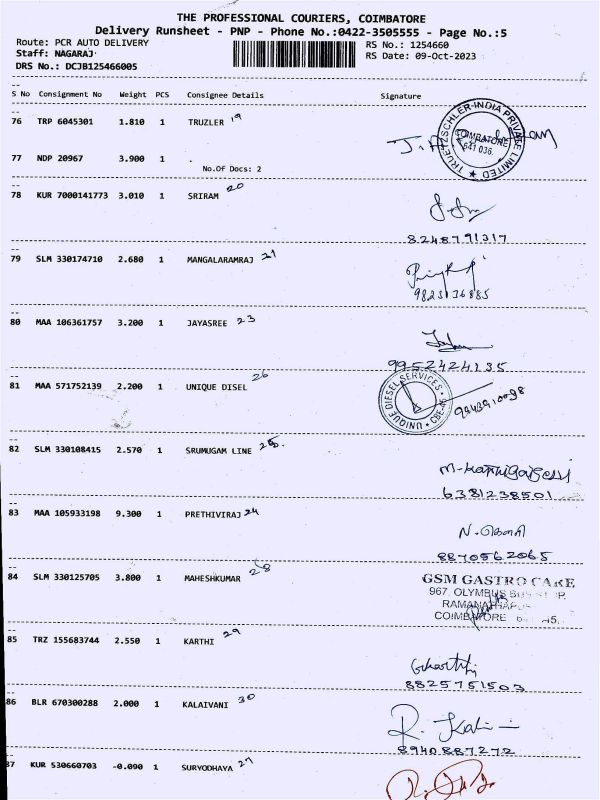 THE PROFESSIONAL COURIERS, COIMBATORE
Delivery Runsheet - PNP - Phone No.:0422-3505555 - Page No.:5
Route: PCR AUTO DELIVERY RS No.: 1254660
Staff: NAGARAJ RS Date: 09-Oct-2023
DRS No.: DCJB125466005
S No Consignment No Weight PCS Consignee Details Signature
76 TRP 6045301 1.810 1 TRUZLER 19
TRUETZSCHLER-INDIA PRIVATE LIMITED
COIMBATORE
641 036.
77 NDP 20967 3.900 1 .
No.Of Docs: 2
78 KUR 7000141773 3.010 1 SRIRAM 20
8248791317
79 SLM 330174710 2.680 1 MANGALARAMRAJ 21
9823136885
80 MAA 106361757 3.200 1 JAYASREE 23
9952424135
81 MAA 571752139 2.200 1 UNIQUE DISEL 26
UNIQUE DIESEL SERVICES
82 SLM 330108415 2.570 1 SRUMUGAM LINE 25.
6381238501
83 MAA 105933198 9.300 1 PRETHIVIRAJ 24
8870562065
84 SLM 330125705 3.800 1 MAHESHKUMAR 28
GSM GASTRO CARE
967, OLYMPUS
COIMBATORE
85 TRZ 155683744 2.550 1 KARTHI 29
8825751503
86 BLR 670300288 2.000 1 KALAIVANI 30
8940887272
87 KUR 530660703 -0.090 1 SURYODHAYA 27